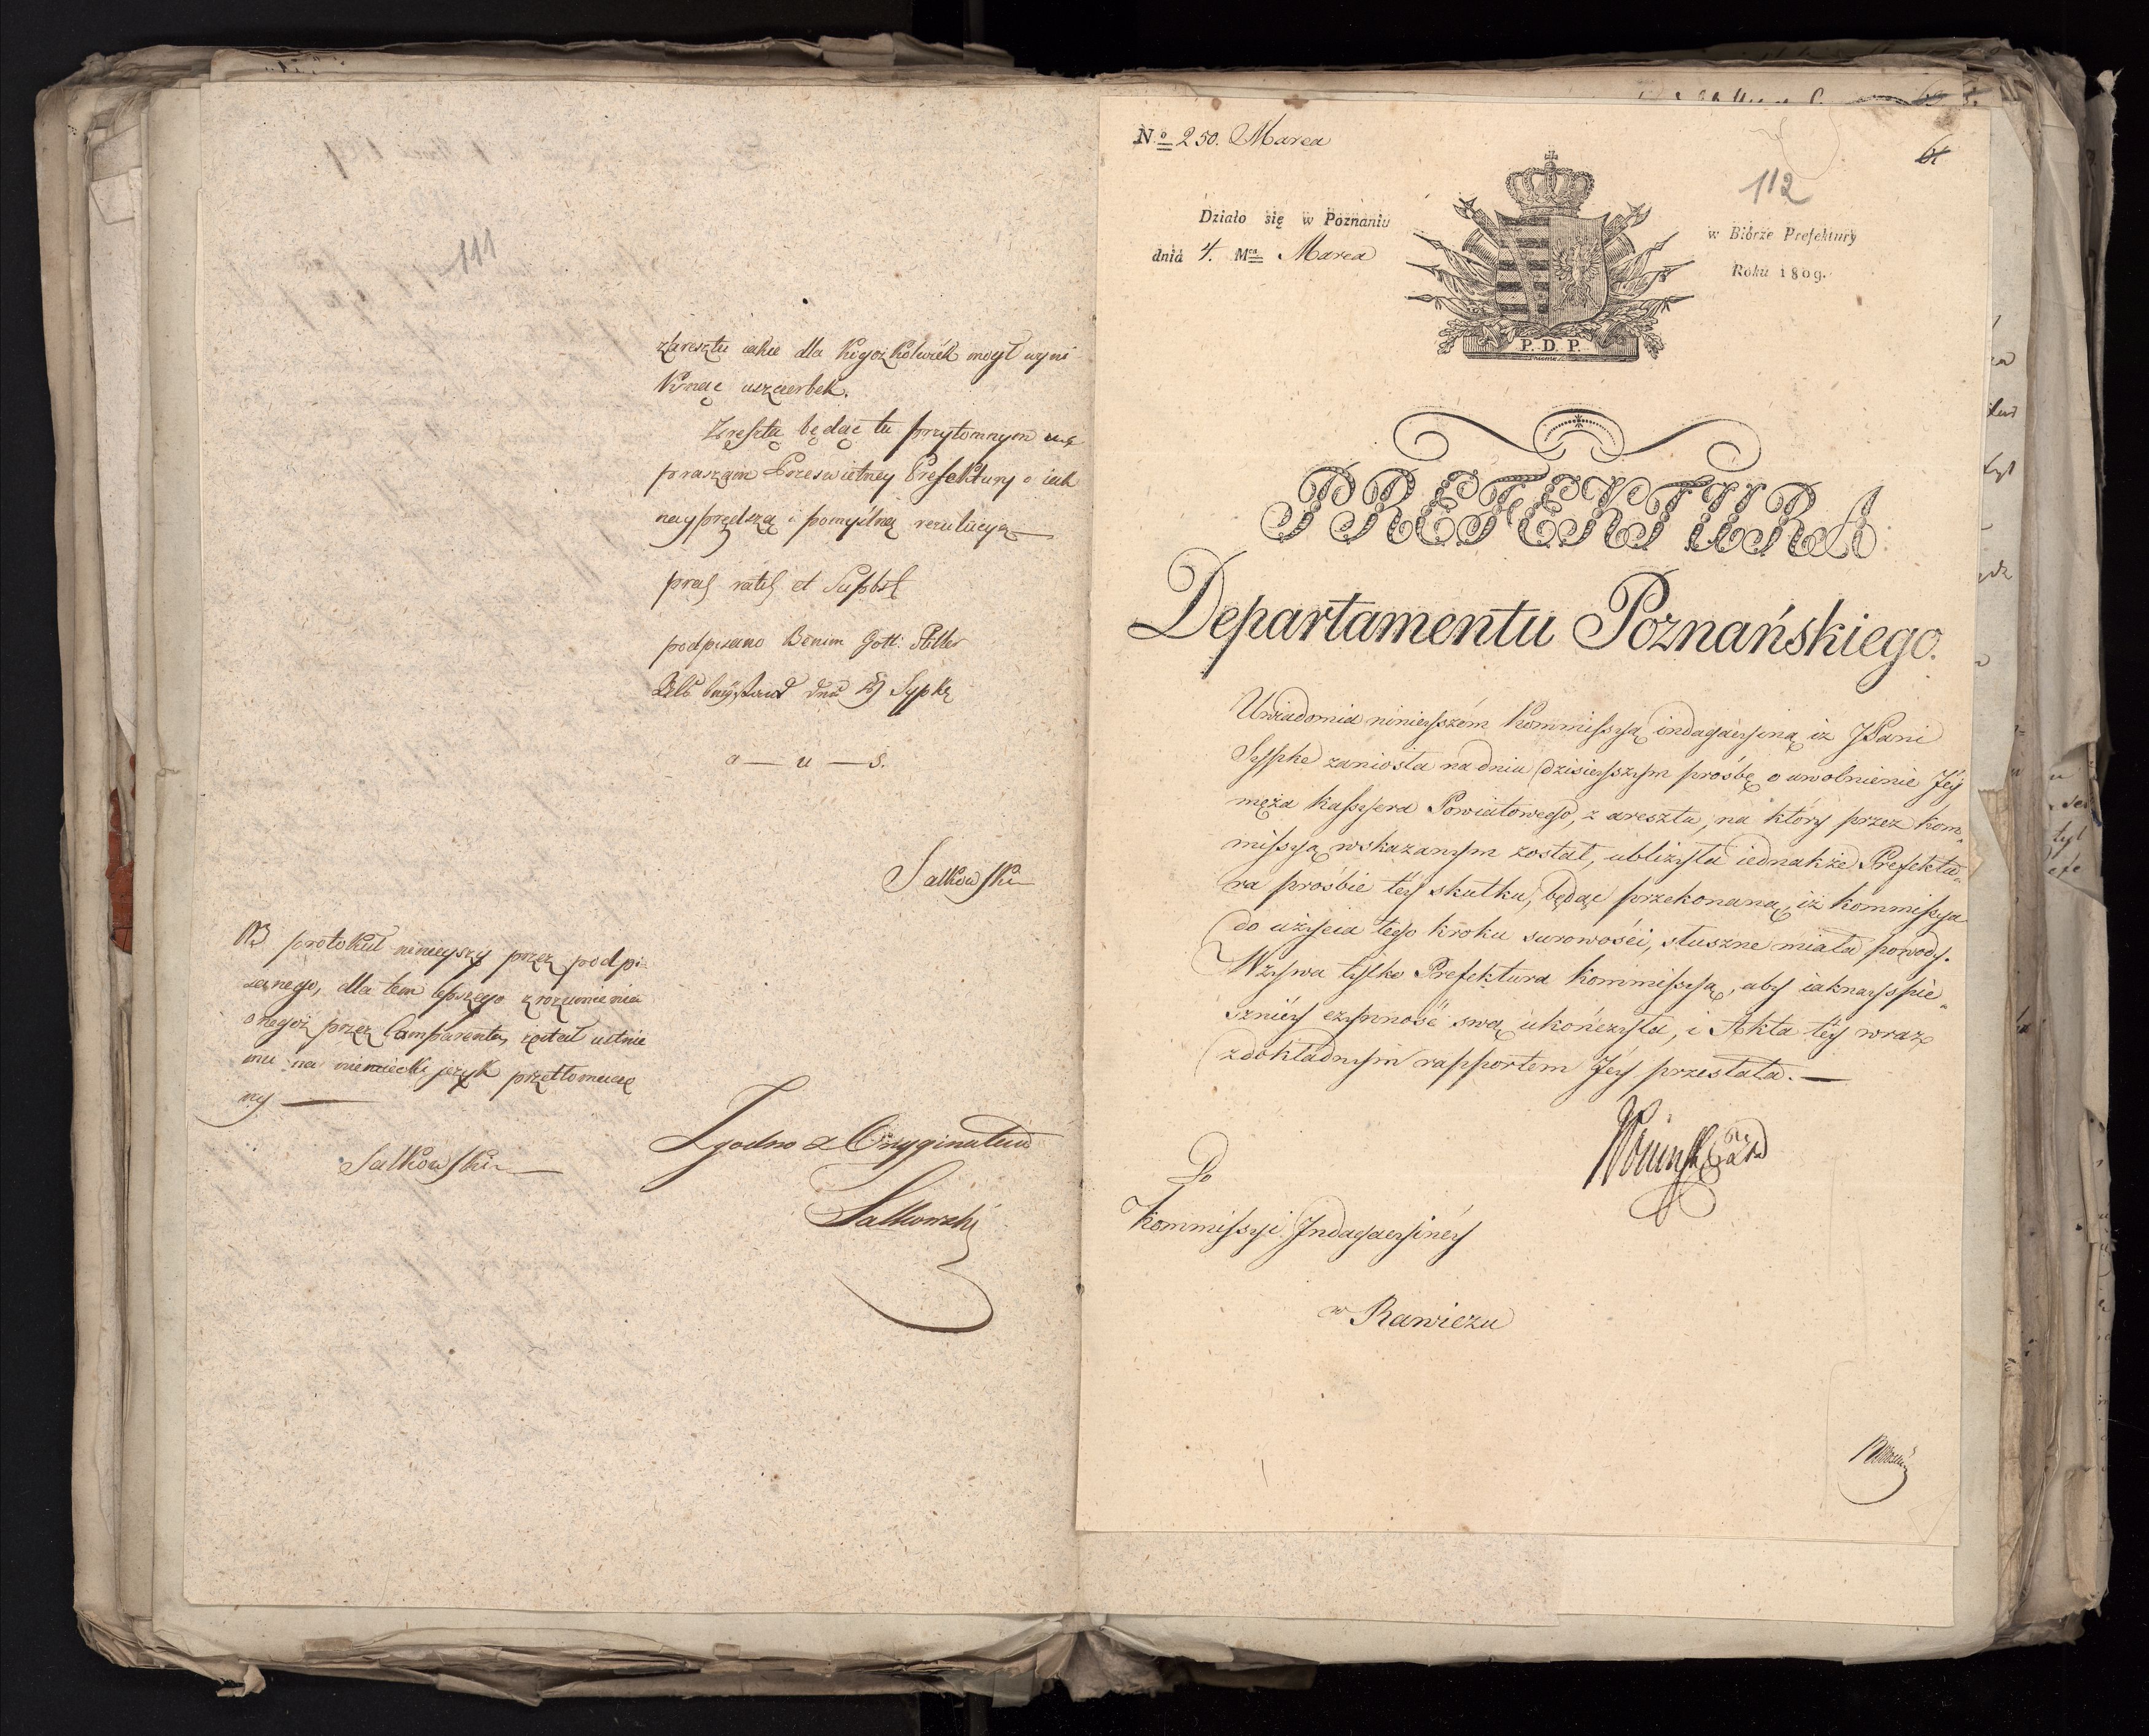 111
zaresztu iakie dla kogożkolwiek mógł wyni
knąć uszczerbek.
Zresztą będąc tu przytomnym
praszam Prześwietney Prefektury o iak
nayprędszą i pomyślną rezolucyą —
podpisano Gott:
Sypke
a — u — s.
Salkowski
NB protokuł ninieyszy przez podpi
sanego, dla tem lepszego zrozumienia
onegoż przez Comparenta, został ustnie
mu na niemiecki język przetłomaczo
ny —
Salkowski
Zgodno z Oryginałem
Salkowski
Nº 250. Marca
61
112
Działo się w Poznaniu
dnia 4. Mca Marca
w Biórze Prefektury
Roku 1809.
P. D. P.
PREFEKTURA
Departamentu Poznańskiego.
Uwiadomia ninieyszém Kommissyą indagacyiną iż JPani
Sypke zaniosła na dniu dzisieyszym prośbę o uwolnienie Jéy
męża Kassyera Powiatowego, z aresztu, na który przez Kom-
missyą wskazanym został, ubliżyła iednakże Prefektu-
ra prośbie téy skutku, będąc przekonaną, iż Kommissya
do użycia tego kroku surowości, słuszne miała powody.
Wzywa tylko Prefektura Kommissyą, aby iaknayspie-
szniéy czynność swą ukończyła, i Akta téy wraz
z dokładnym rapportem Jéy przesłała. —
Do
Kommissyi Indagacyinéy
w Rawiczu